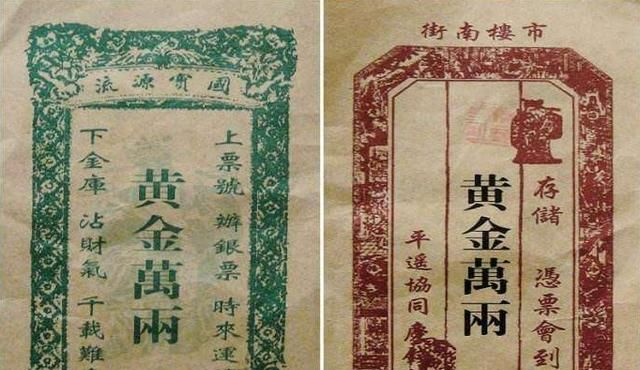 國寶源流
上票號 辦銀票 時來運
黄金萬兩
下金庫 沾財氣 千載難
市樓南街
存儲 憑票會到
黄金萬兩
平遥協同慶